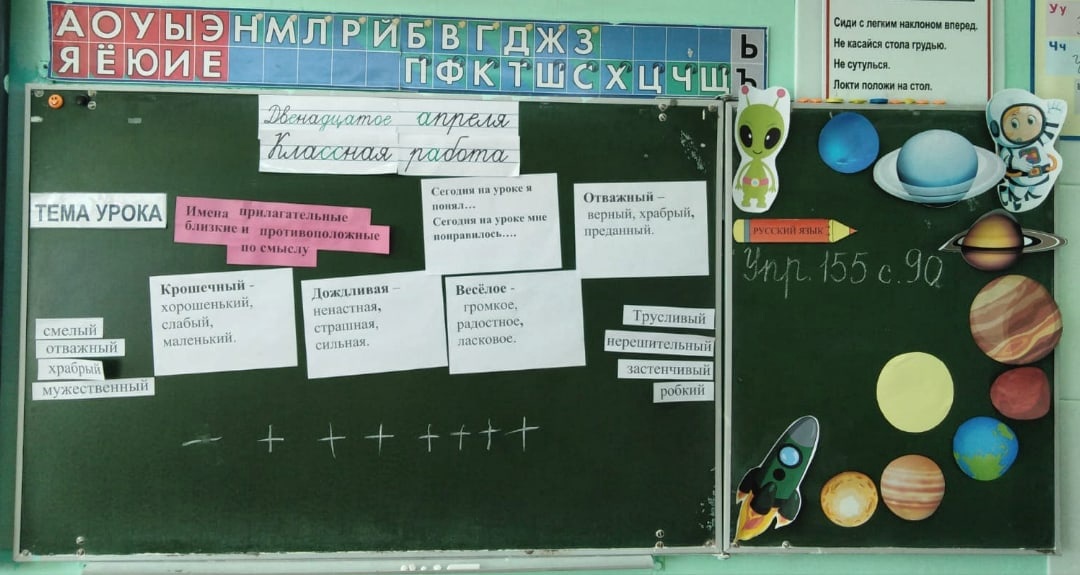 А О У Ы Э Н М Л Р Й Б В Г Д Ж З Ь
Я Ё Ю И Е П Ф К Т Ш С Х Ц Ч Щ Ъ
Сиди с легким наклоном вперед.
Не касайся стола грудью.
Не сутулься.
Локти положи на стол.
Уу
Чч
Двенадцатое апреля
Классная работа
ТЕМА УРОКА
Имена прилагательные
близкие и противоположные
по смыслу
Сегодня на уроке я
понял…
Сегодня на уроке мне
понравилось….
Отважный –
верный, храбрый,
преданный.
Крошечный -
хорошенький,
слабый,
маленький.
Дождливая –
ненастная,
страшная,
сильная.
Весёлое -
громкое,
радостное,
ласковое.
смелый
отважный
храбрый
мужественный
Трусливый
нерешительный
застенчивый
робкий
— + + + + + + +
РУССКИЙ ЯЗЫК
Упр. 155 с. 90